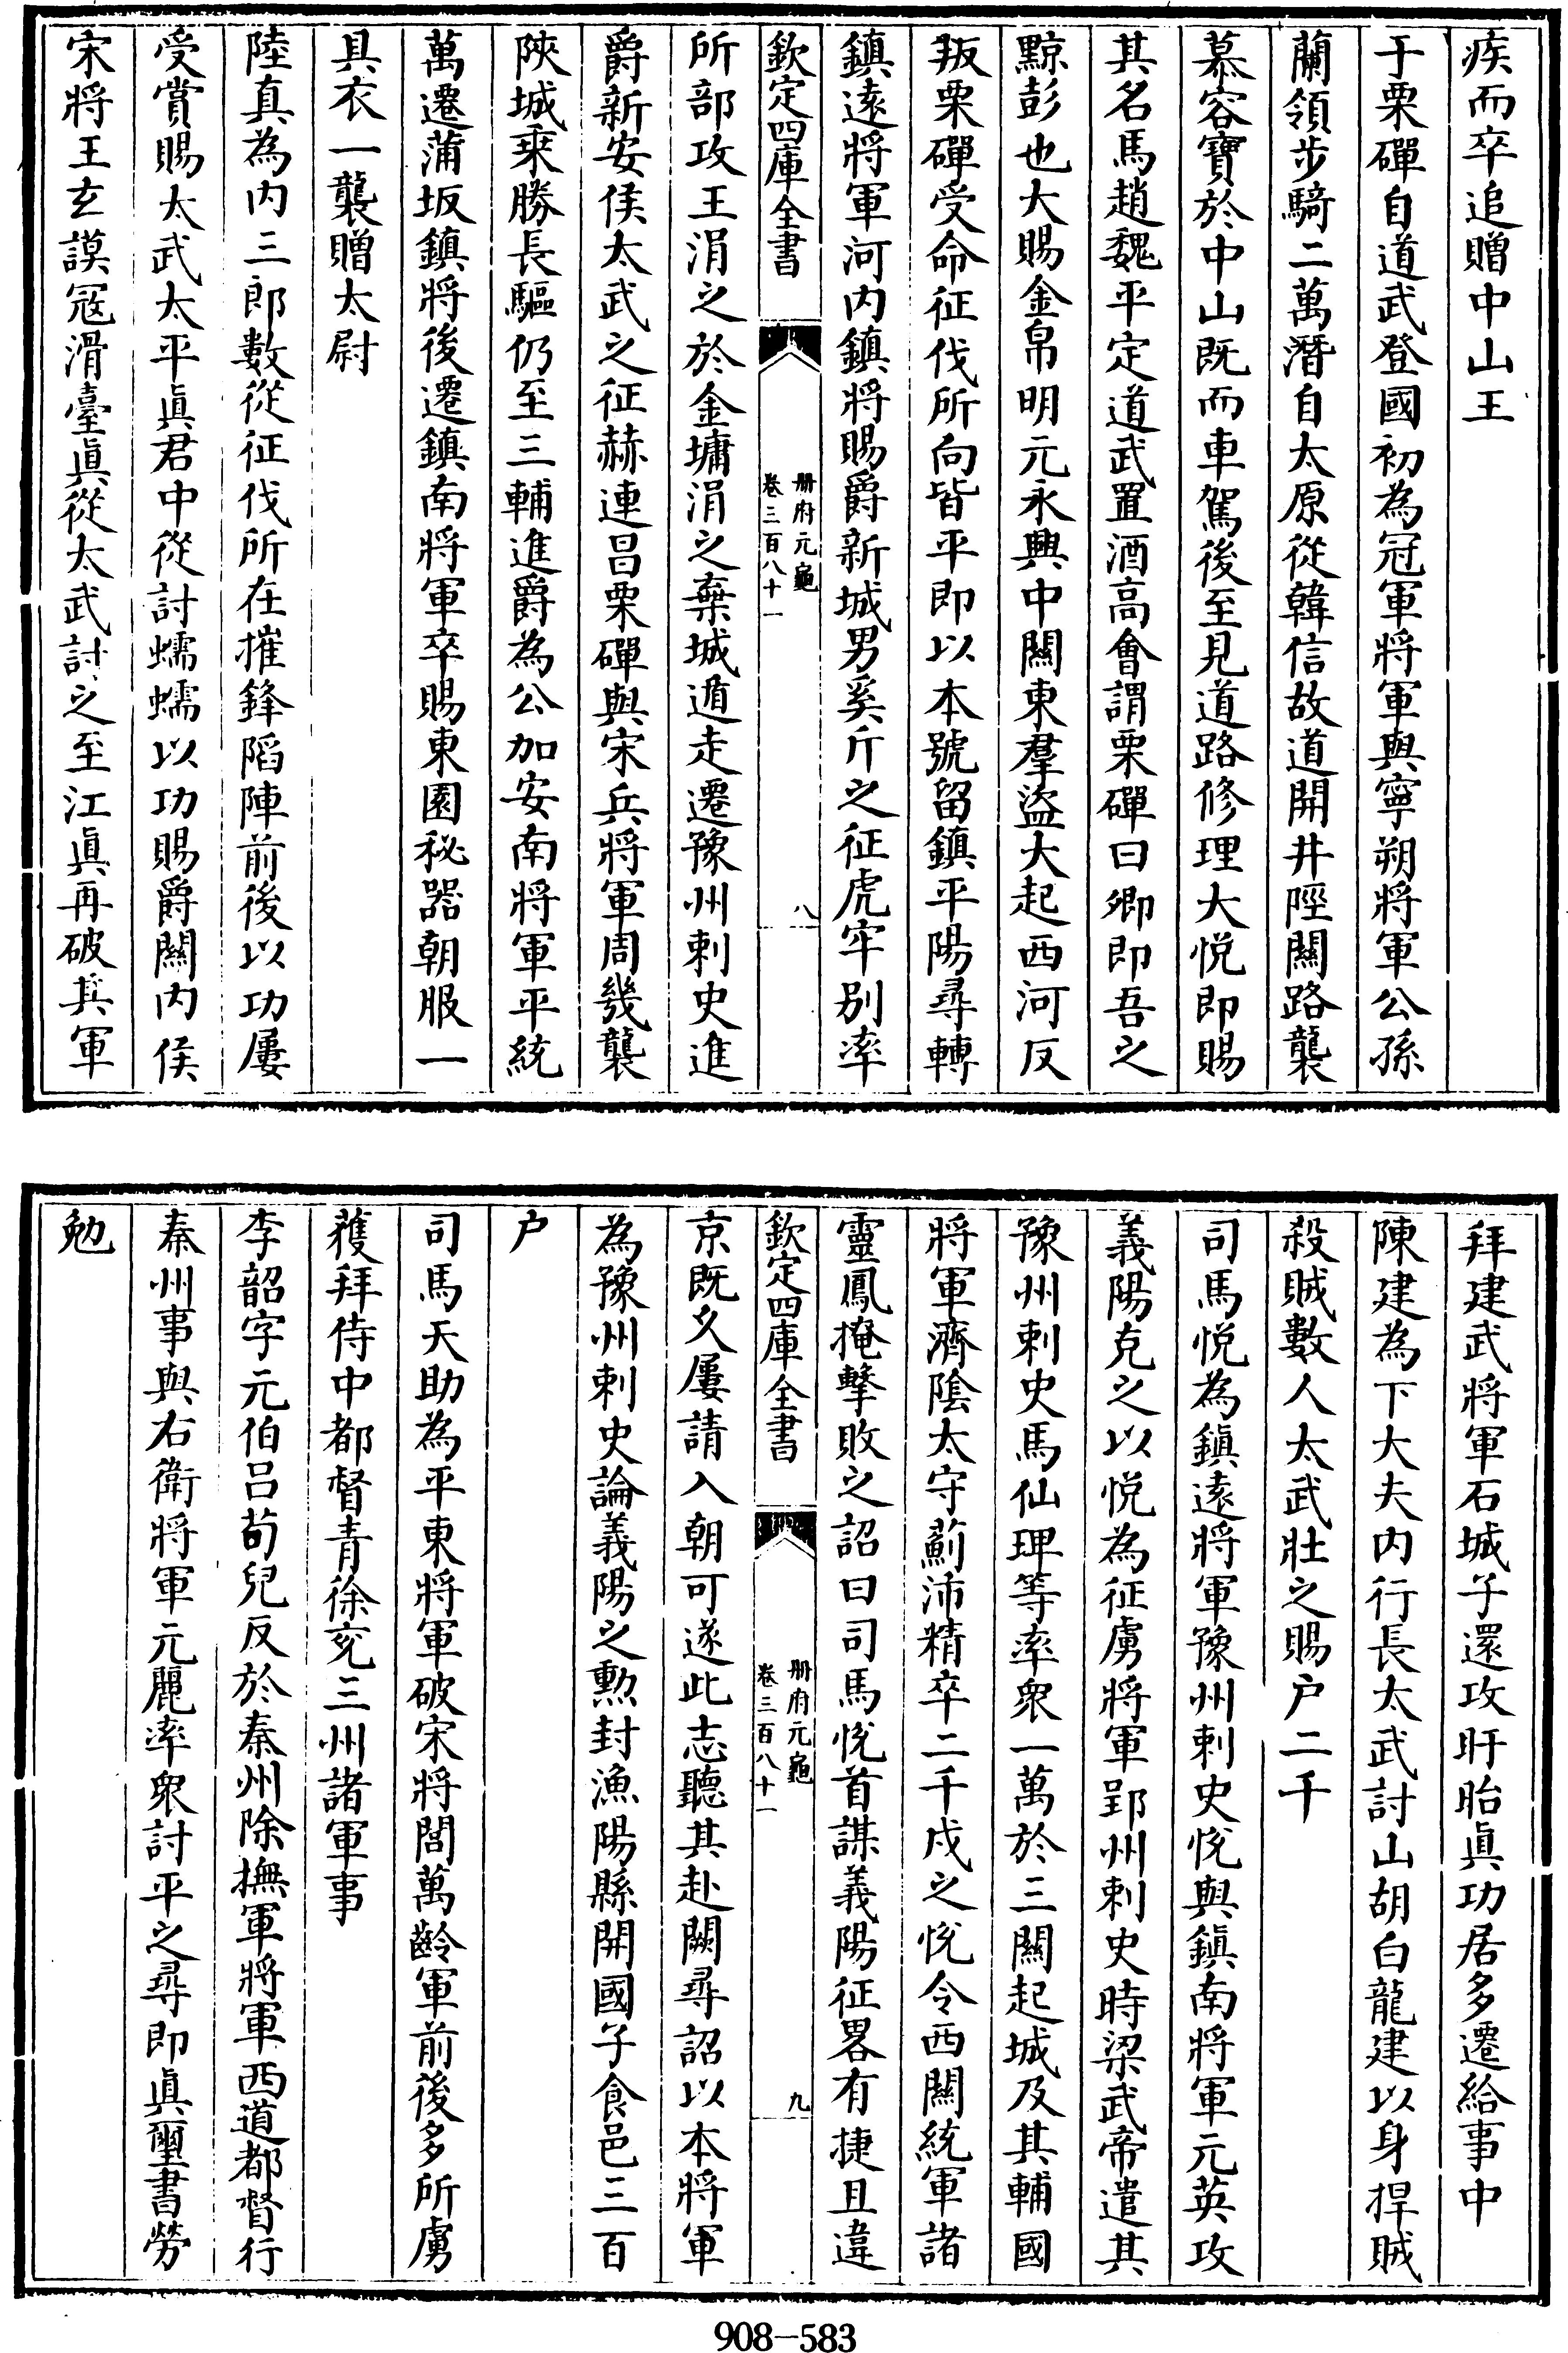 疾而卒追贈中山王
于栗磾自道武登國初為冠軍將軍與寧朔將軍公孫
蘭領步騎二萬潛自太原從韓信故道開井陘關路襲
慕容寶於中山既而車駕後至見道路修理大悅即賜
其名馬趙魏平定道武置酒高會謂栗磾曰卿即吾之
黥彭也大賜金帛明元永興中關東羣盜大起西河反
叛栗磾受命征伐所向皆平即以本號留鎮平陽尋轉
鎮遠將軍河內鎮將賜爵新城男奚斤之征虎牢別率
欽定四庫全書
冊府元龜
卷三百八十一
八
所部攻王涓之於金墉涓之棄城遁走遷豫州刺史進
爵新安侯太武之征赫連昌栗磾與宋兵將軍周幾襲
陝城乘勝長驅仍至三輔進爵為公加安南將軍平統
萬遷蒲坂鎮將後遷鎮南將軍卒賜東園秘器朝服一
具衣一襲贈太尉
陸真為內三郎數從征伐所在摧鋒陷陣前後以功屢
受賞賜太武太平真君中從討蠕蠕以功賜爵關內侯
宋將王玄謨寇滑臺真從太武討之至江真再破其軍
拜建武將軍石城子還攻盱眙真功居多遷給事中
陳建為下大夫內行長太武討山胡白龍建以身捍賊
殺賊數人太武壯之賜户二千
司馬悅為鎮遠將軍豫州刺史悅與鎮南將軍元英攻
義陽克之以悅為征虜將軍郢州刺史時梁武帝遣其
豫州刺史馬仙琕等率眾一萬於三關起城及其輔國
將軍濟陰太守薊沛精卒二千戍之悅令西關統軍諸
靈鳳掩擊敗之詔曰司馬悅首謀義陽征畧有捷且違
欽定四庫全書
冊府元龜
卷三百八十一
九
京既久屢請入朝可遂此志聽其赴闕尋詔以本將軍
為豫州刺史論義陽之勲封漁陽縣開國子食邑三百
户
司馬天助為平東將軍破宋將閭萬齡軍前後多所虜
獲拜侍中都督青徐兗三州諸軍事
李韶字元伯吕苟兒反於秦州除撫軍將軍西道都督行
秦州事與右衛將軍元麗率眾討平之尋即真璽書勞
勉
908-583